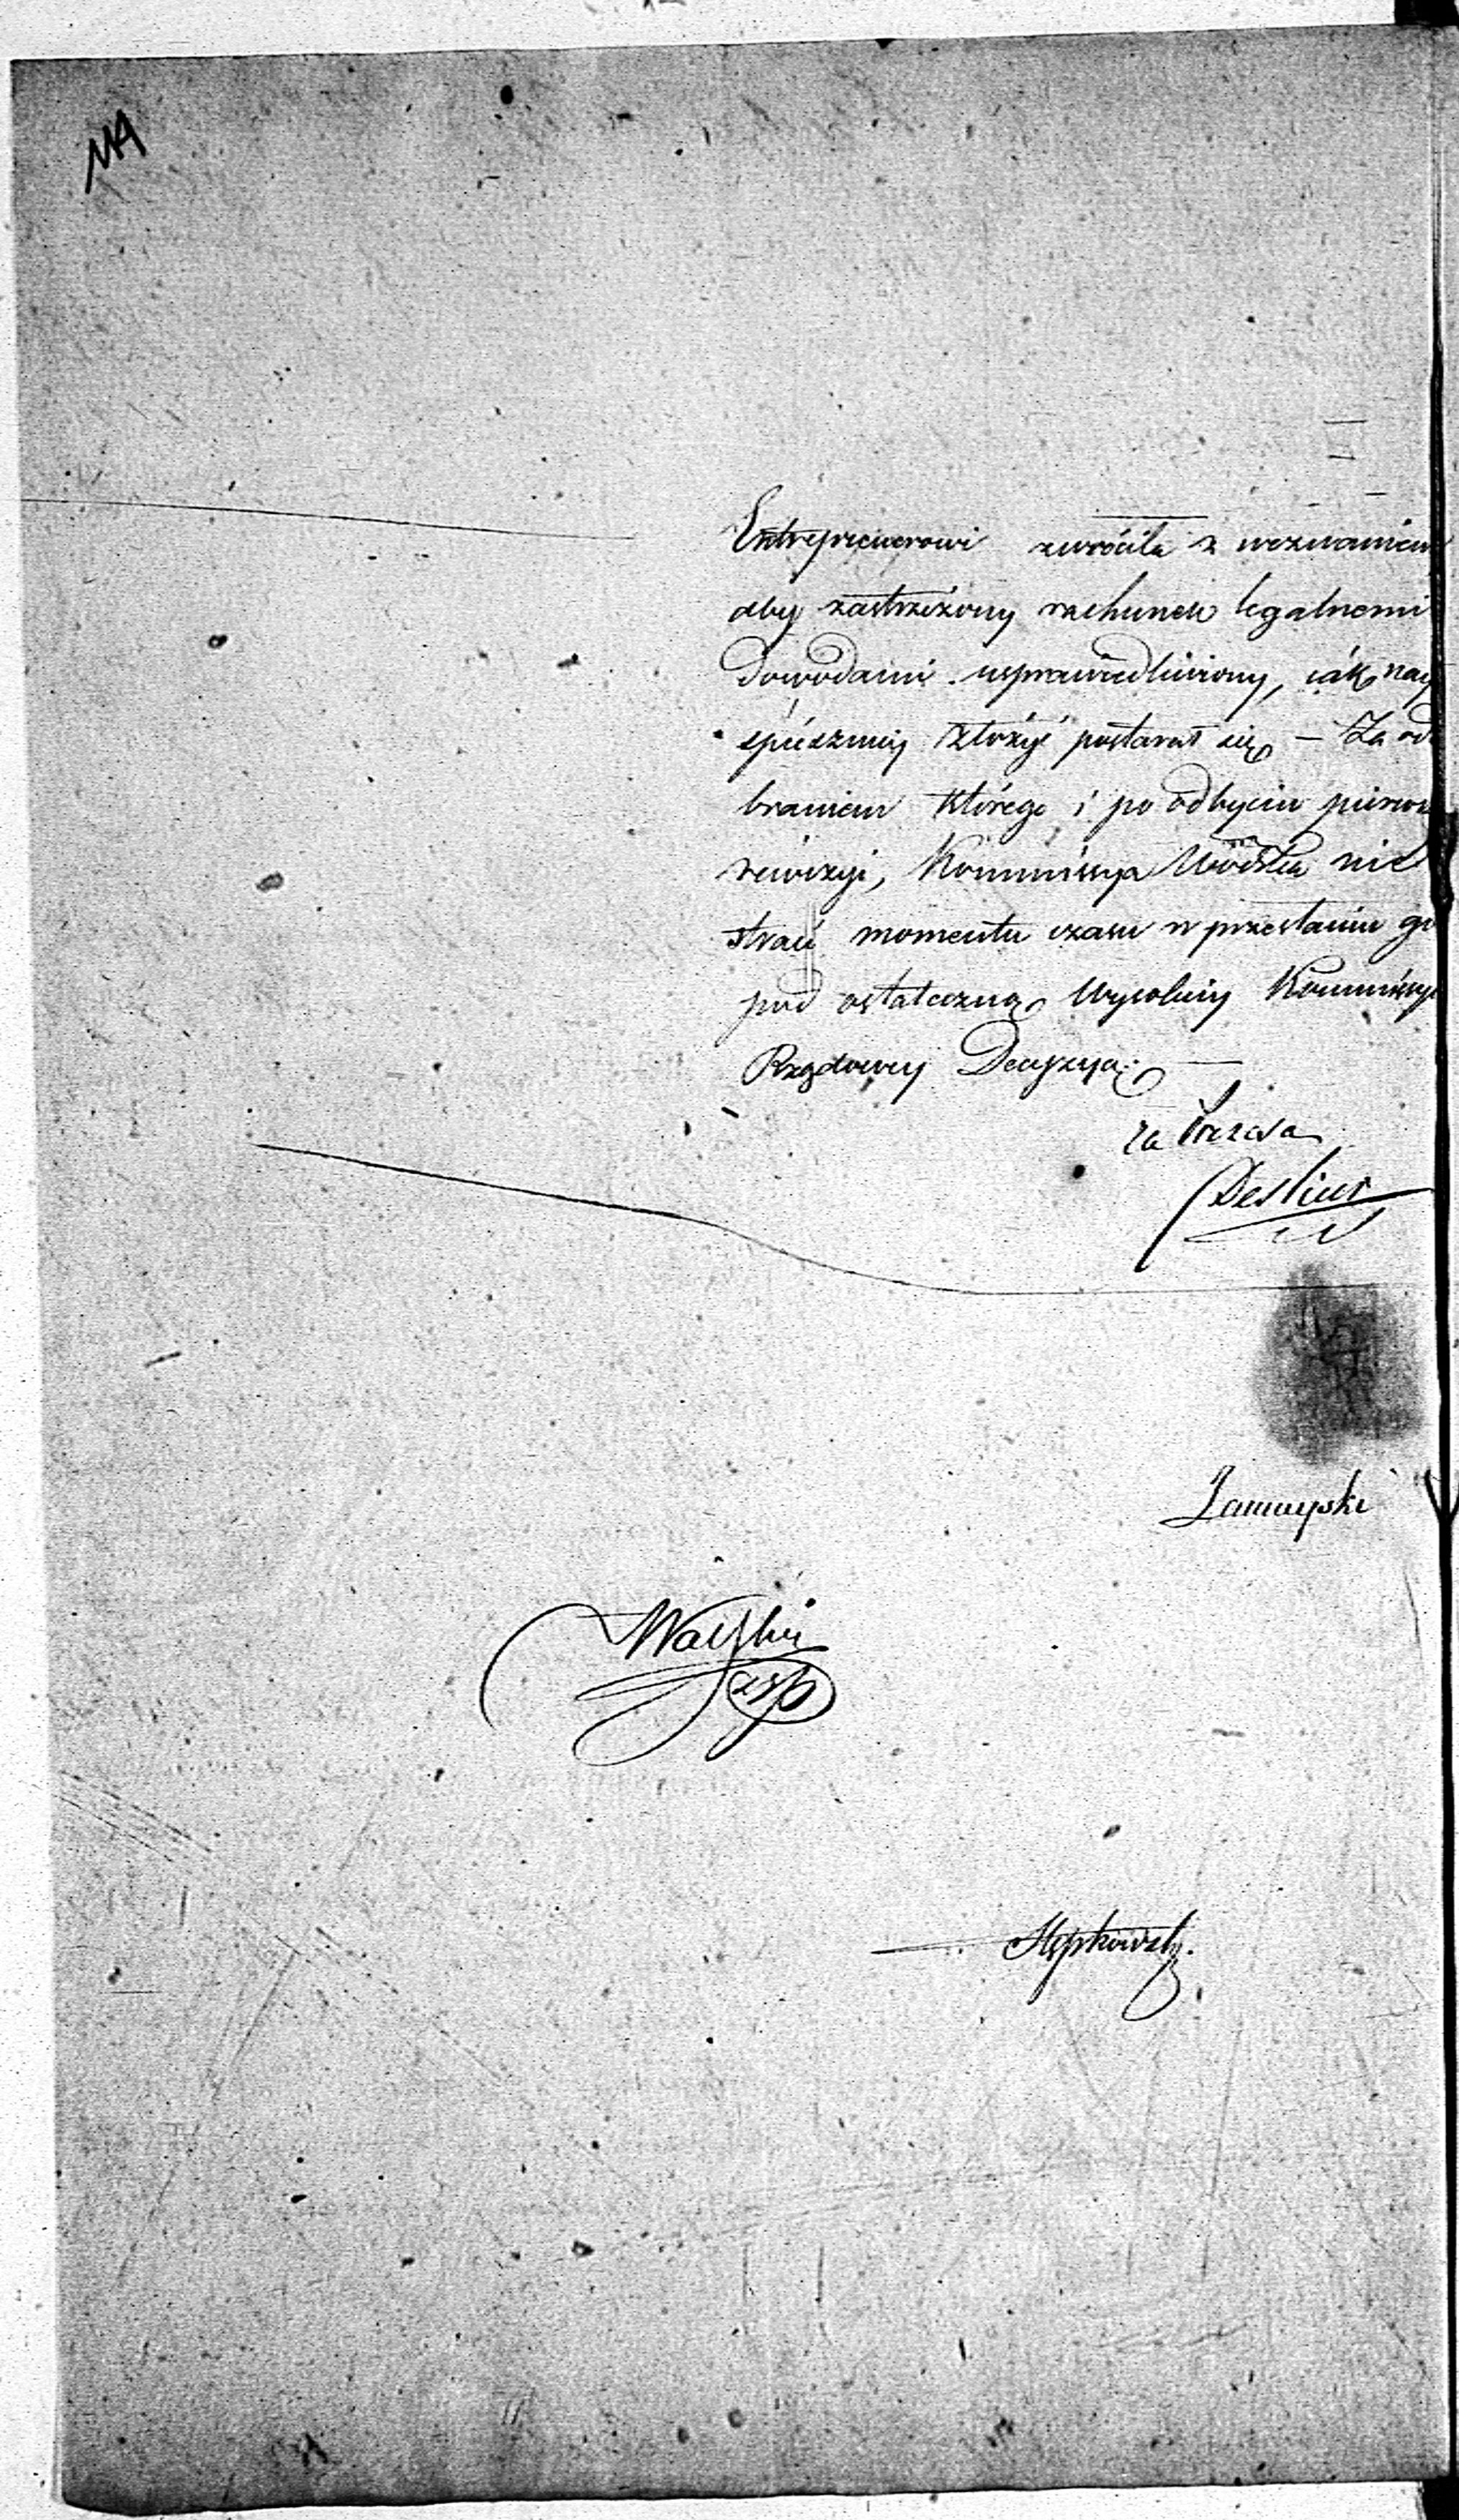 114
Entreprenerowi zwróciła z wezwaniem
aby zastrzeżony rachunek legalnemi
Dowodami usprawiedliwiony, iak nay
spieszniey złożyć postarał się — Za ode
braniem którego i po odbyciu pierwsz
rewizyi, Kommissya Wdzka nie
straci momentu czasu w przesłaniu go
pod ostateczną Wysokiey Kommissyi
Rządowey Decyzyą. —
za Prezesa
Zamoyski